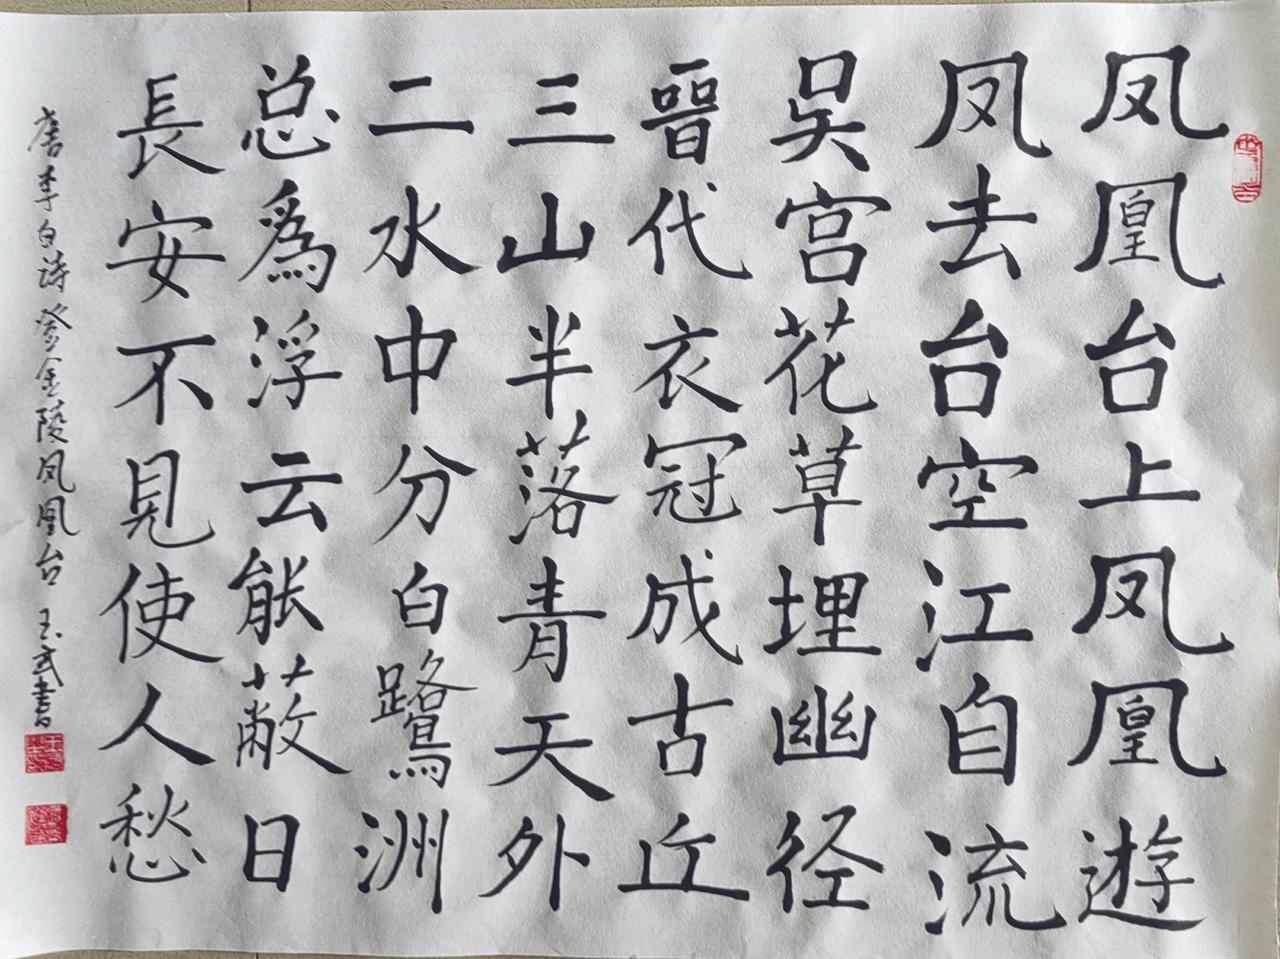 凤凰台上凤凰遊
凤去台空江自流
吴宫花草埋幽径
晉代衣冠成古丘
三山半落青天外
二水中分白鷺洲
总為浮云能蔽日
長安不見使人愁
唐李白诗登金陵凤凰台 玉武書